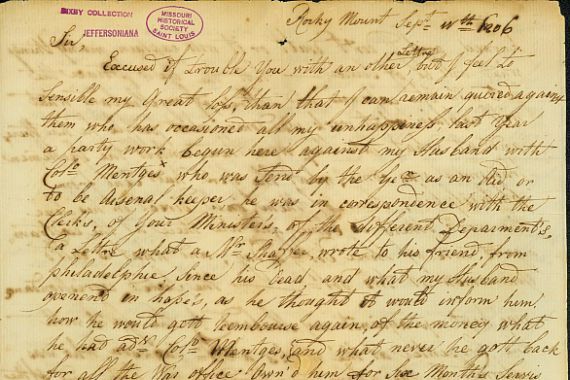 BIXBY COLLECTION
JEFFERSONIANA
MISSOURI
HISTORICAL
SOCIETY
SAINT LOUIS
Rocky Mount Sept. 1806
Sir,
Lettre
Excused if I trouble You with an other but I feel to
Sensible my Great Loss, than that I can remain quired against
them who has occasioned all my unhappiness, last Year
a party work begun here against my Husband with
Colo Mentges who was Send by the as an Aid or
to be Arsenal keeper he was in correspondence with the
Clerks, of Your Minister's, of the different Deparment's,
a Lettre what a Mr wrote to his friend, from
philadelphie Since his Dead, and what my Husband
openend in hopes, as he thought it would inform him,
how he would gott reembourse again of the money what
he had Colo Mentges, and what never he gott back
for all the War office Own'd him for Six Month's